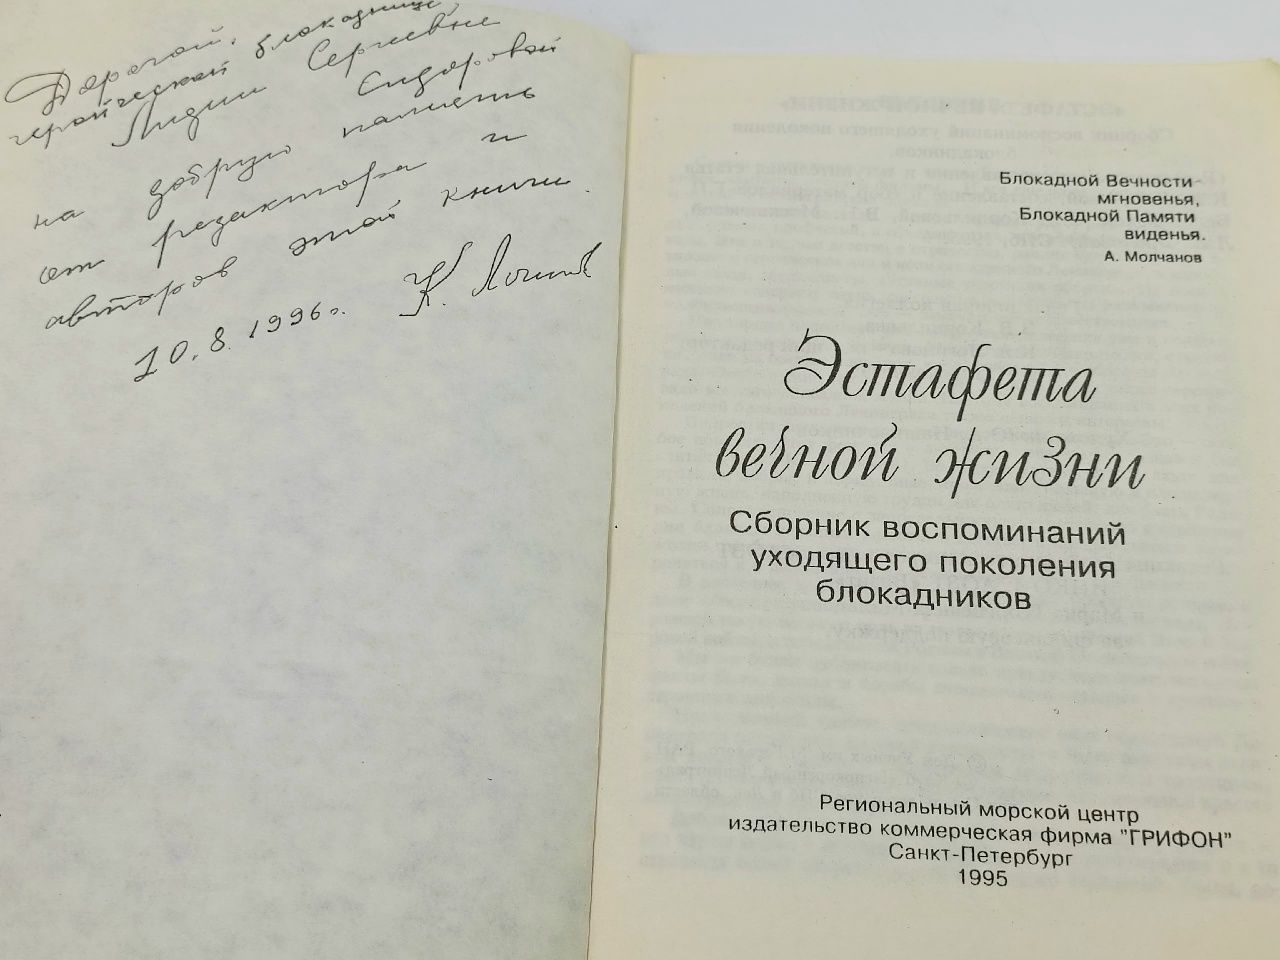 Дорогой,
героической блокаднице,
Лидии Сергиевне
Сидоровой
на добрую память
от редактора и
авторов этой книги.
10.8.1996г. К.
Блокадной Вечности
мгновенья,
Блокадной Памяти
виденья.
А. Молчанов
Эстафета
вечной жизни
Сборник воспоминаний
уходящего поколения
блокадников
Региональный морской центр
издательство коммерческая фирма "ГРИФОН"
Санкт-Петербург
1995